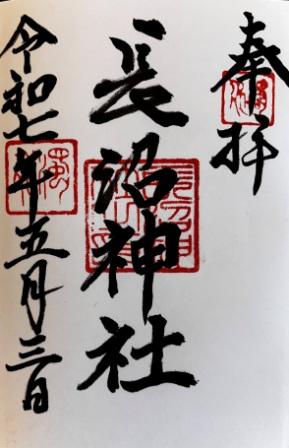 奉拝
長沼神社
令和七年五月三日